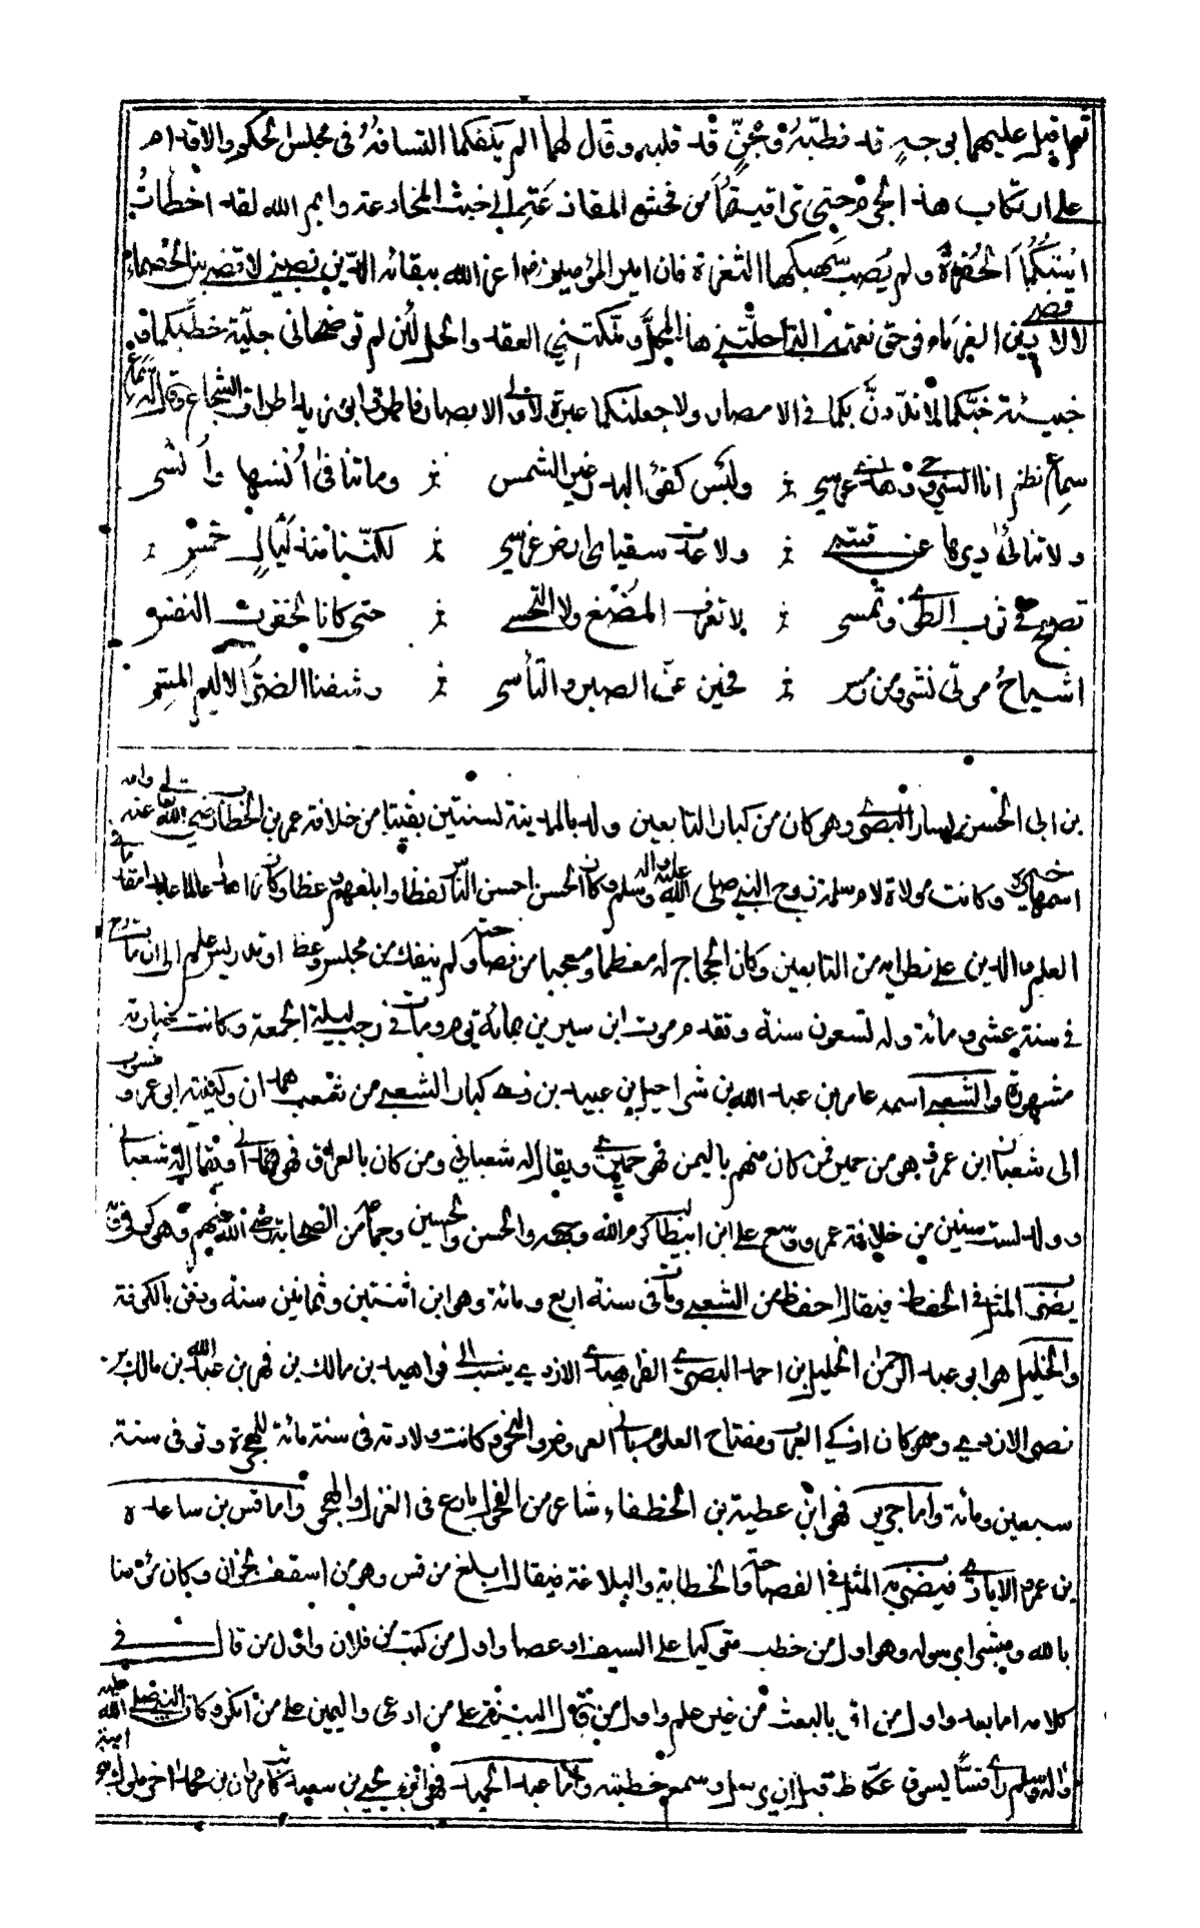 ثم اقبل عليهما بوجهٍ قد قطّبهُ ومِجَنٍّ قد قلبه وقال لهما الم يكفكما التسافهُ فى مجلس الحكم والاقدام
على ارتكاب هذا الجرم حتى تراقيتما من فحش المقاذعَةِ الى خبث المخادعة وايم الله لقد اخطأت
استكما الحُفرةَ ولم يُصب سهمكما الثغرة فان امير المؤمنين اعز الله ببقائه الدين نصبنى لاقضى بين الخصماء
لا لاقضى دين الغرماء فوحق نعمته التى احلتنى هذا المحل وملكتنى العقد والحل لئن لم توضحا لى جلية خطبكما و
خبيئة خبكما لاندّدنّ بكما فى الامصار ولاجعلنكما عبرة لاولى الابصار فاطرق ابو زيد اطراق الشجاع وقال له سماع
سماع نظم انا السروجى وهذى عرسى ولیس كفؤ البدر غير الشمس وما تنافى أُنسها وأُنسى
ولا تناءى ديرها عن قسى ولا عدت سقياى ارض غرسى لكننا منذ لَيَالٍ خمس
نصبح فى ثوب الطوى ونمسى لا نعرف المضغ ولا التحسى حتى كانا لخفوت النفس
اشباحُ موتى نشروا من رمس فحين عزّ الصبر والتأسى وشفنا الضرّ الاليم المس
بن ابى الحسن يسار البصرى وهو كان من كبار التابعين ولد بالمدينة لسنتين بقيتا من خلافة عمر بن الخطاب رضى الله تعالى عنه وامه
اسمها خيرة وكانت مولاة لام سلمة زوج النبى صلى الله عليه واله وسلم وكان الحسن احسن الناس لفظا وابلغهم وعظا وكان زاهدا عالما عابدا مقدما فى
العلم والدين على نظرايه من التابعين وكان الحجاج له معظما ومعجبا من فصاحته ولم ينفك من مجلس وعظ او تدريس علم الى ان مات بالبصرة
فى سنة عشر ومائة وله تسعون سنة وتقدم موت ابن سيرين بمائة يوم ومات فى رجب ليلة الجمعة وكانت جنازته
مشهورة والشعبى اسمه عامر بن عبد الله بن شراحيل بن عبيد بن ذى كبار الشعبى من شعب همدان وكنيته ابو عمرو منسوب
الى شعبان ابن عمرو هو من حمير فمن كان منهم باليمن فهو حميرى ويقال له شعبانى ومن كان بالعراق فهو همدانى ويقال له شعبانى
وولد لست سنين من خلافة عمر وسمع على ابن ابيطالب كرم الله وجهه والحسن والحسين وجماعة من الصحابة رضى الله عنهم وهو كوفى وبه
يضرب المثل فى الحفظ فيقال احفظ من الشعبى ومات فى سنة اربع ومائة وهو ابن اثنتين وثمانين سنة ودفن بالكوفة
والخليل هو ابو عبد الرحمن الخليل بن احمد البصرى الفراهيدى الازدى ينسب الى فراهيد بن مالك بن فهر بن عبد الله بن مالك بن
نصر الازدى وهو كان اذكى العرب ومفتاح العلوم بانى العروض والنحو وكانت ولادته فى سنة مائة للهجرة وتوفى سنة
سبعين ومائة واما جرير فهو ابن عطية بن الخطفاء شاعر من الفحول بارع فى الغزل والهجو واما قس بن ساعدة
بن عمرو الايادى فيضرب به المثل فى الفصاحة والخطابة والبلاغة فيقال ابلغ من قس وهو من اسقف نجران وكان مؤمنا
بالله ومبشرا برسوله وهو اول من خطب متوكيا على السيف او عصا واول من كتب من فلان واول من قال فى
كلامه اما بعد واول من اقر بالبعث من غير علم واول من قال البينة على من ادعى واليمين على من انكر وكان النبى صلى الله عليه
واله وسلم رأى قسًا بسوق عكاظ قبل ان يرسل وسمع خطبته واما عبد الحميد فهو ابن يحيى بن سعيد كاتب مروان بن محمد اخر ملوك بنى امية